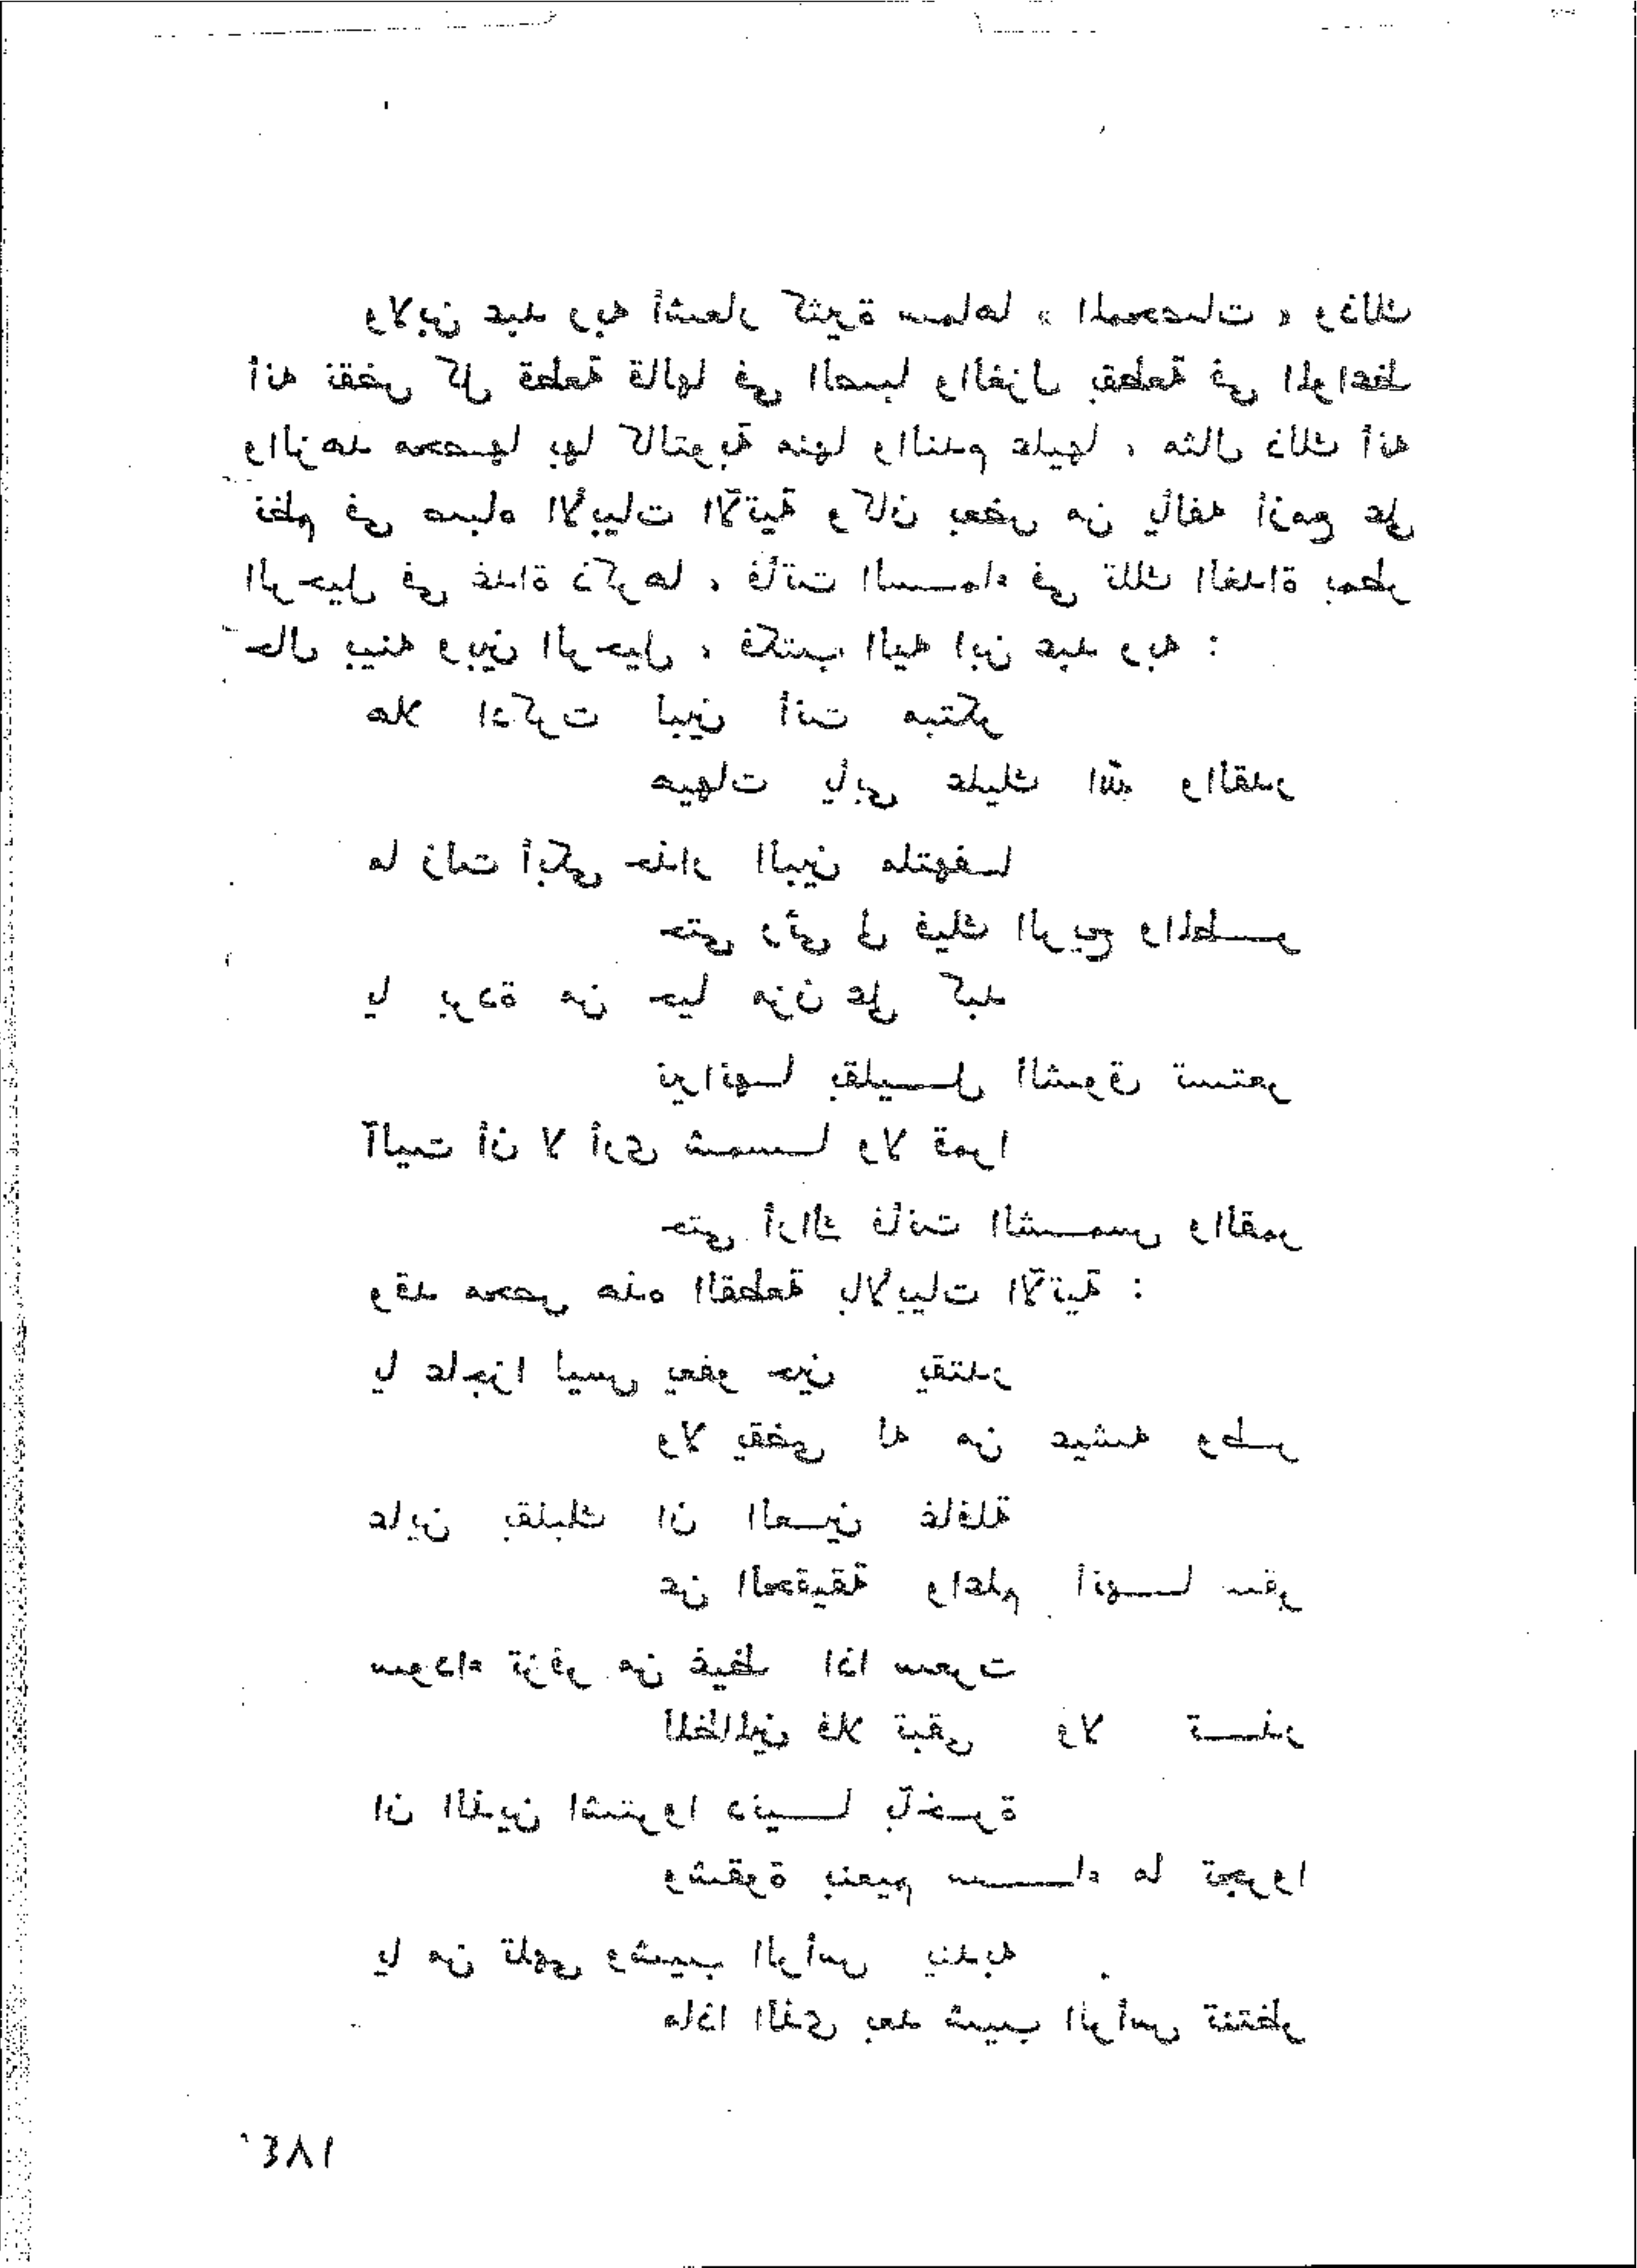 ولابن عبد ربه أشعار كثيرة سماها « الممحصات » وذلك
أنه نقض كل قطعة قالها فى الصبا والغزل بقطعة فى المواعظ
والزهد محصها بها كالتوبة منها والندم عليها ، مثال ذلك أنه
نظم فى صباه الأبيات الآتية وكان بعض من يألفه أزمع على
الرحيل فى غداة ذكرها ، فأتت السماء فى تلك الغداة بمطر
حال بينه وبين الرحيل ، فكتب اليه ابن عبد ربه :
هلا ادكرت لبين أنت مبتكر
هيهات يأبى عليك الله والقدر
ما زلت أبكى حذار البين ملتهفا
حتى رثى لى فيك الريح والمطر
يا بردة من حيا مزن على كبد
نيرانها بقليل الشوق تستعر
آليت أن لا أرى شمسا ولا قمرا
حتى أراك فأنت الشمس والقمر
وقد محص هذه القطعة بالأبيات الآتية :
يا عاجزا ليس يعفو حين يقتدر
ولا يقضى له من عيشه وطر
عاين بقلبك ان العين غافلة
عن الحقيقة واعلم أنها سقر
سوداء تزفر من غيظ اذا سعرت
للظالمين فلا تبقى ولا تذر
ان الذين اشتروا دنيا بآخرة
وشقوة بنعيم ساء ما تجروا
يا من تلهى وشيب الرأس يندبه
ماذا الذى بعد شيب الرأس تنتظر
١٨٤